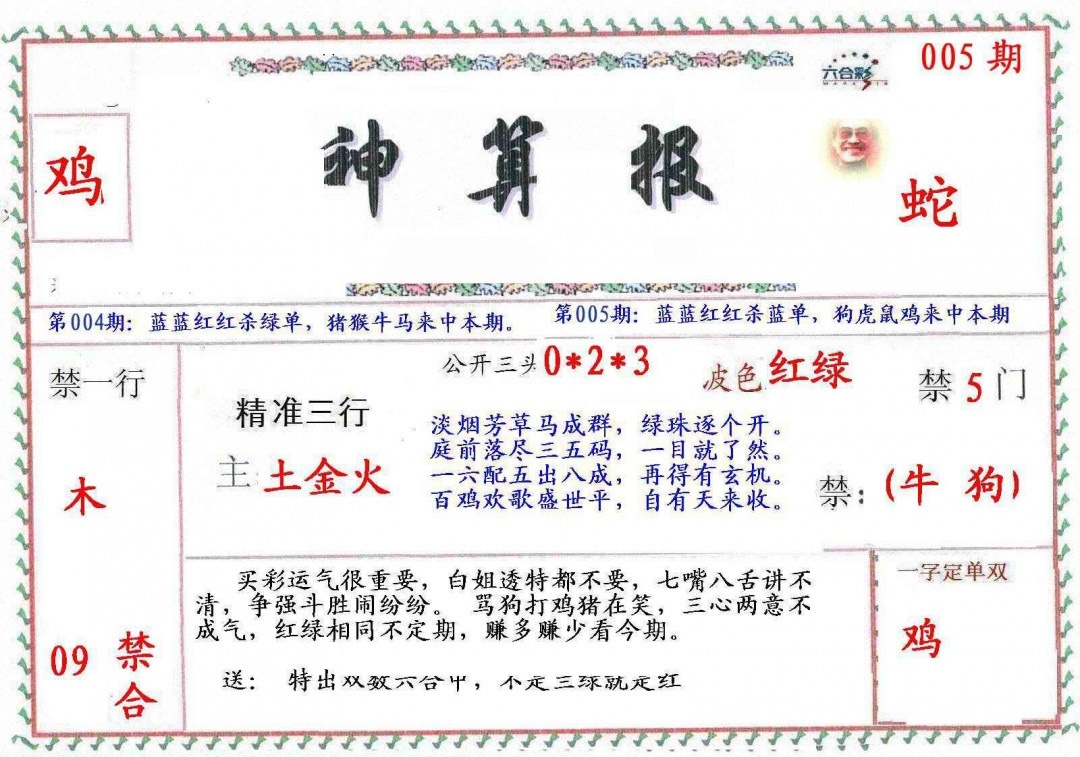 005 期
六合彩
鸡
神 算 报
蛇
第004期：蓝蓝红红杀绿单，猪猴牛马来中本期。
第005期：蓝蓝红红杀蓝单，狗虎鼠鸡来中本期
禁一行
木
09 禁合
公开三头 0*2*3
波色 红绿
精准三行
主 土金火
淡烟芳草马成群，绿珠逐个开。
庭前落尽三五码，一目就了然。
一六配五出八成，再得有玄机。
百鸡欢歌盛世平，自有天来收。
禁 5 门
禁：(牛 狗)
买彩运气很重要，白姐透特都不要，七嘴八舌讲不
清，争强斗胜闹纷纷。 骂狗打鸡猪在笑，三心两意不
成气，红绿相同不定期，赚多赚少看今期。
送： 特出双数六合中，不是三绿就是红
一字定单双
鸡